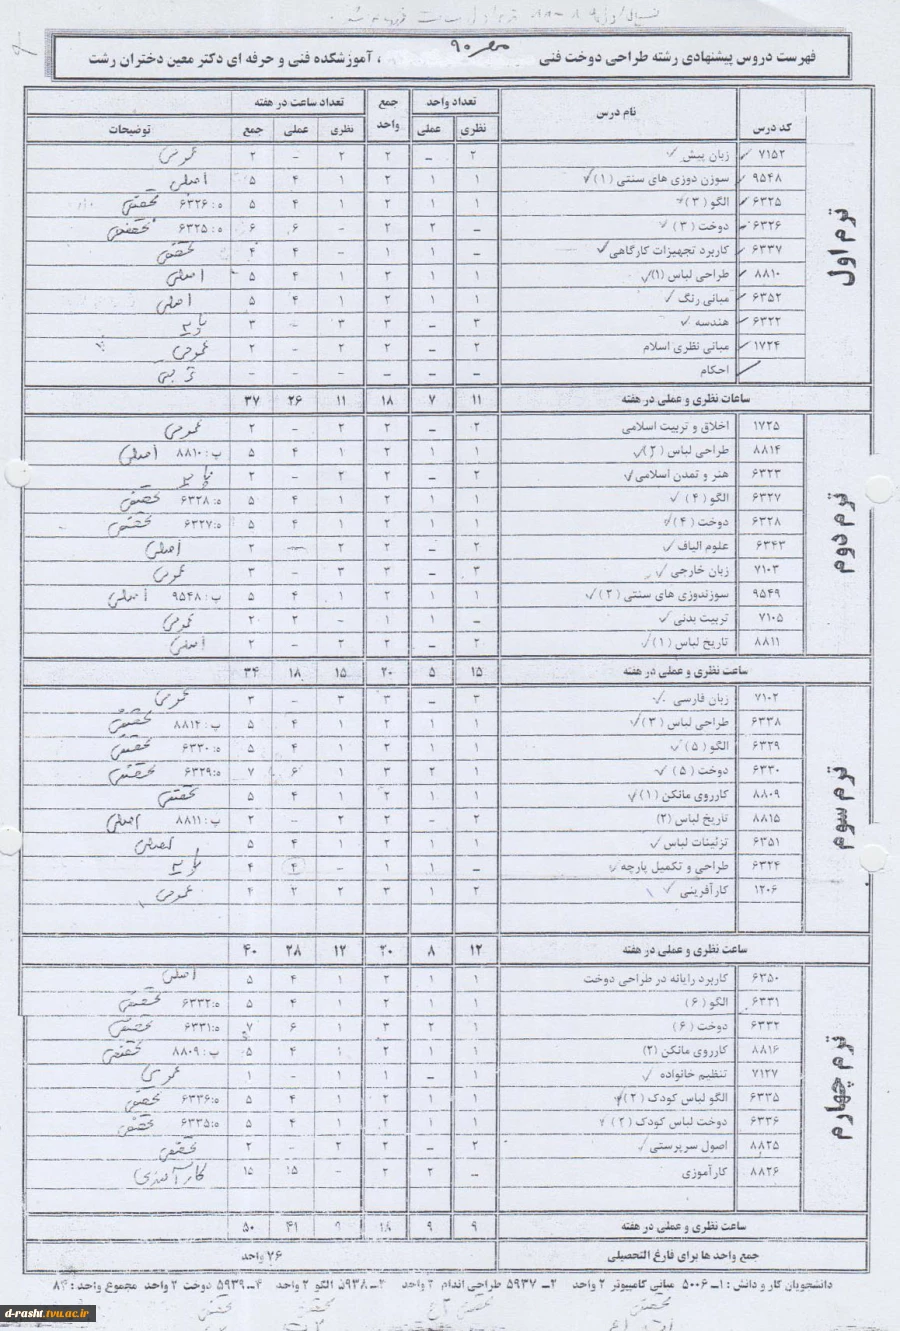 مهر ۹۰
فهرست دروس پیشنهادی رشته طراحی دوخت فنی ، آموزشکده فنی و حرفه ای دکتر معین دختران رشت
کد درس نام درس تعداد واحد جمع واحد تعداد ساعت در هفته توضیحات
نظری عملی نظری عملی جمع
ترم اول
۷۱۵۲ زبان پیش ۲ – ۲ ۲ – ۲ عمومی
۹۵۴۸ سوزن دوزی های سنتی (۱) ۱ ۱ ۲ ۱ ۴ ۵ اصلی
۶۳۲۵ الگو (۳) ۱ ۱ ۲ ۱ ۴ ۵ ه: ۶۳۲۶ تخصصی
۶۳۲۶ دوخت (۳) – ۲ ۲ – ۶ ۶ ه: ۶۳۲۵ تخصصی
۶۳۳۷ کاربرد تجهیزات کارگاهی – ۱ ۱ – ۴ ۴ تخصصی
۸۸۱۰ طراحی لباس (۱) ۱ ۱ ۲ ۱ ۴ ۵ اصلی
۶۳۵۲ مبانی رنگ ۱ ۱ ۲ ۱ ۴ ۵ اصلی
۶۳۲۲ هندسه ۳ – ۳ ۳ – ۳ پایه
۱۷۲۴ مبانی نظری اسلام ۲ – ۲ ۲ – ۲ عمومی
احکام – – – – – –
ساعات نظری و عملی در هفته ۱۱ ۷ ۱۸ ۱۱ ۲۶ ۳۷
ترم دوم
۱۷۲۵ اخلاق و تربیت اسلامی ۲ – ۲ ۲ – ۲ عمومی
۸۸۱۴ طراحی لباس (۲) ۱ ۱ ۲ ۱ ۴ ۵ پ: ۸۸۱۰ اصلی
۶۳۲۳ هنر و تمدن اسلامی ۲ – ۲ ۲ – ۲ پایه
۶۳۲۷ الگو (۴) ۱ ۱ ۲ ۱ ۴ ۵ ه: ۶۳۲۸ تخصصی
۶۳۲۸ دوخت (۴) ۱ ۱ ۲ ۱ ۴ ۵ ه: ۶۳۲۷ تخصصی
۶۳۴۳ علوم الیاف ۲ – ۲ ۲ – ۲ اصلی
۷۱۰۳ زبان خارجی ۳ – ۳ ۳ – ۳ عمومی
۹۵۴۹ سوزندوزی های سنتی (۲) ۱ ۱ ۲ ۱ ۴ ۵ پ: ۹۵۴۸ اصلی
۷۱۰۵ تربیت بدنی – ۱ ۱ – ۲ ۲ عمومی
۸۸۱۱ تاریخ لباس (۱) ۲ – ۲ ۲ – ۲ اصلی
ساعت نظری و عملی در هفته ۱۵ ۵ ۲۰ ۱۵ ۱۸ ۳۴
ترم سوم
۷۱۰۲ زبان فارسی ۳ – ۳ ۳ – ۳ عمومی
۶۳۳۸ طراحی لباس (۳) ۱ ۱ ۲ ۱ ۴ ۵ پ: ۸۸۱۴ تخصصی
۶۳۲۹ الگو (۵) ۱ ۱ ۲ ۱ ۴ ۵ ه: ۶۳۳۰ تخصصی
۶۳۳۰ دوخت (۵) ۱ ۲ ۳ ۱ ۶ ۷ ه: ۶۳۲۹ تخصصی
۸۸۰۹ کارروی مانکن (۱) ۱ ۱ ۲ ۱ ۴ ۵ تخصصی
۸۸۱۵ تاریخ لباس (۲) ۲ – ۲ ۲ – ۲ پ: ۸۸۱۱ اصلی
۶۳۵۱ تزئینات لباس ۱ ۱ ۲ ۱ ۴ ۵ اصلی
۶۳۲۴ طراحی و تکمیل پارچه – ۱ ۱ – ۴ ۴ پایه
۱۲۰۶ کارآفرینی ۲ ۱ ۳ ۲ ۲ ۴ عمومی
ساعت نظری و عملی در هفته ۱۲ ۸ ۲۰ ۱۲ ۲۸ ۴۰
ترم چهارم
۶۳۵۰ کاربرد رایانه در طراحی دوخت ۱ ۱ ۲ ۱ ۴ ۵ اصلی
۶۳۳۱ الگو (۶) ۱ ۱ ۲ ۱ ۴ ۵ ه: ۶۳۳۲ تخصصی
۶۳۳۲ دوخت (۶) ۱ ۲ ۳ ۱ ۶ ۷ ه: ۶۳۳۱ تخصصی
۸۸۱۶ کارروی مانکن (۲) ۱ ۱ ۲ ۱ ۴ ۵ پ: ۸۸۰۹ تخصصی
۷۱۲۷ تنظیم خانواده ۱ – ۱ ۱ – ۱ عمومی
۶۳۳۵ الگو لباس کودک (۲) ۱ ۱ ۲ ۱ ۴ ۵ ه: ۶۳۳۶ تخصصی
۶۳۳۶ دوخت لباس کودک (۲) ۱ ۱ ۲ ۱ ۴ ۵ ه: ۶۳۳۵ تخصصی
۸۸۲۵ اصول سرپرستی ۲ – ۲ ۲ – ۲ تخصصی
۸۸۲۶ کارآموزی – ۲ ۲ – ۱۵ ۱۵ کارآموزی
ساعت نظری و عملی در هفته ۹ ۹ ۱۸ ۹ ۴۱ ۵۰
جمع واحد ها برای فارغ التحصیلی ۷۶ واحد
دانشجویان کار و دانش : ۱ــ ۵۰۰۶ مبانی کامپیوتر ۲ واحد ۲ــ ۵۹۳۷ طراحی اندام ۲ واحد ۳ــ ۵۹۳۸ الگو ۲ واحد ۴ــ ۵۹۳۹ دوخت ۲ واحد مجموع واحد : ۸۴
d-rasht.tvu.ac.ir